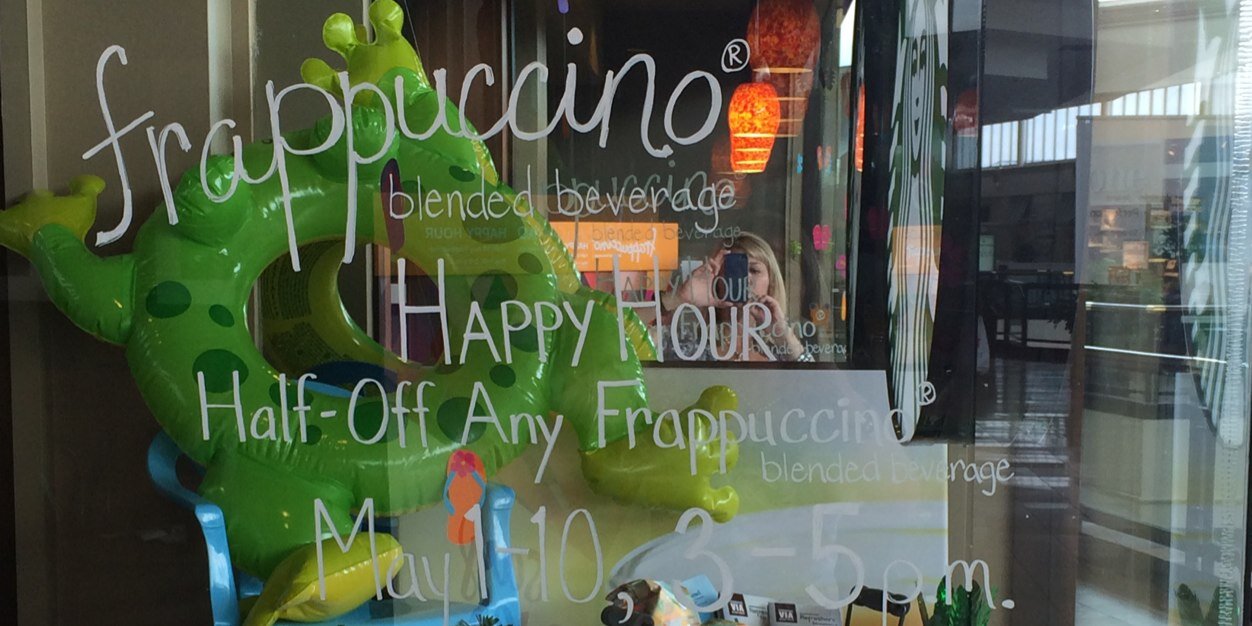 frappuccino®
blended beverage
HAPPY HOUR
Half-Off Any Frappuccino®
blended beverage
May 1-10, 3-5 p.m.
VIA
VIA